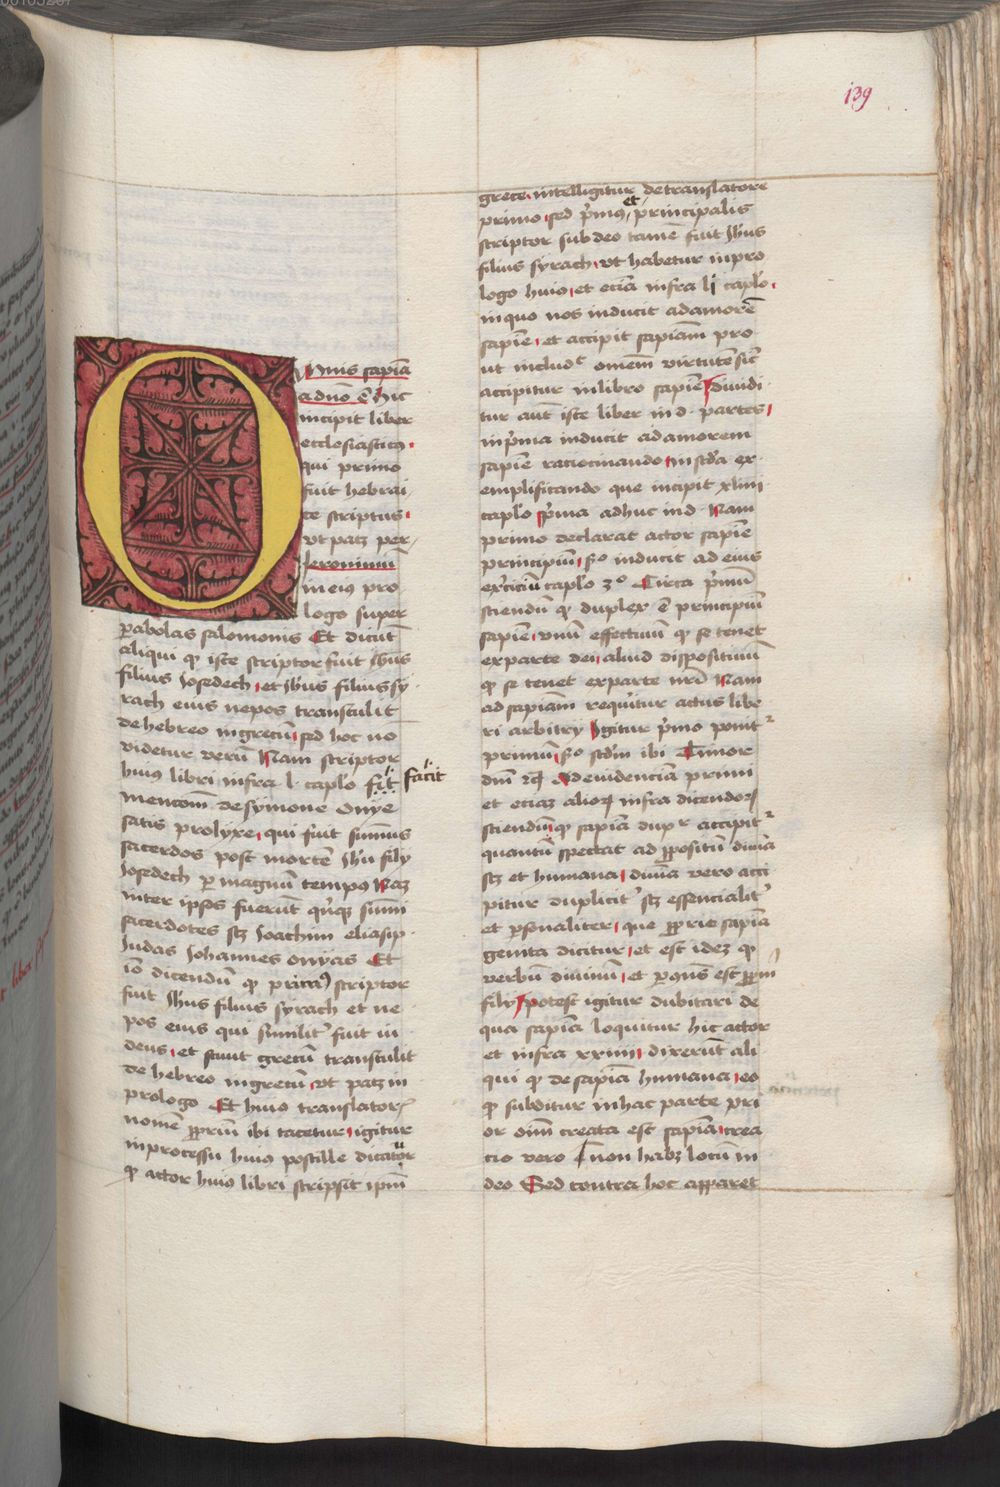 139
Omnis sapiā
a dn̄o ē hic
incipit liber
ecclesiasticꝰ
qui primo
fuit hebrai
ce scriptus
vt patꝫ per
Jeronimū
in eius pro
logo super
ꝑabolas salomonis Et dicūt
aliqui ꝙ iste scriptor fuit Jhūs
filius Josedech et Jhūs filius sy
rach eius nepos transtulit
de hebreo in grecū sed hoc nō
videtur verū Nam scriptor
huius libri infra l caplo facit
mencōem de symone onye
satis prolyxe qui fuit sūmus
sacerdos post mortē Jhū filij
Josedech ꝑ magnū tempꝰ Naꝫ
inter ipsos fuerūt qͥnqꝫ sūmi
sacerdotes scꝫ Joachim eliasip
Judas Johannes onyas Et
iō dicendū ꝙ scriptor
fuit Jhūs filius syrach et ne
pos eius qui similitˀ fuit iu
deus et sciuit grecū transtulit
de hebreo in grecū vt patꝫ in
prologo Et huiꝰ translatorꝭ
nomē ꝓpriū ibi tacetur igitur
in processu huiꝰ postille dicatur
ꝙ actor huiꝰ libri scripsit ipm̄
grece intelligitur de translatore
primo sed pͥmus et principalis
scriptor sub deo tamē fuit Jhūs
filius syrach vt habetur in pro
logo huiꝰ et eciā infra lͥ caplo
in quo nos inducit ad amorē
sapiē et accipit sapiam̄ pro
ut includͨ omēm virtutē sic̄
accipitur in libro sapiē diuidi
tur aūt iste liber in d partes
in pͥma inducit ad amorem
sapiē raciocinando in scd̄a ex
emplificando que incipit xliiii
caplo pͥma adhuc in d Nam
primo declarat actor sapiē
principiū sͦ inducit ad eius
exˀciciū caplo 3ͦ Circa pͥmū
sciendū ꝙ duplex ē principiū
sapiē vnū effectiuū ꝙ se tenet
ex parte dei aliud dispositiuū
ꝙ se tenet ex parte nrī Nam
ad sapiam̄ requiritur actus libe
ri arbitrij Igitur pͥmo ponitᷣ
primū sͦ scd̄m ibi Timor
dn̄i Ad euidenciā primi
et eciaꝫ alioꝝ infra dicendoꝝ
sciendū ꝙ sapiā dupͬ accipitᷣ
quantū spectat ad ꝓpositū diuīa
scꝫ et humana diuīa vero acci
pitur duplicitˀ scꝫ essencialitˀ
et ꝑsonaliter que ꝓprie sapiā
genita dicitur et est ideꝫ ꝙ
verbū diuinū et est ꝓpriū
filij potest igitur dubitari de
qua sapiā loquitur hic actor
et infra xxiiii dixerūt ali
qui ꝙ de sapiā humana eo
ꝙ subditur in hac parte pri
or oīm creata est sapiā crea
cio vero non habꝫ locū in
deo Sed contra hoc apparet